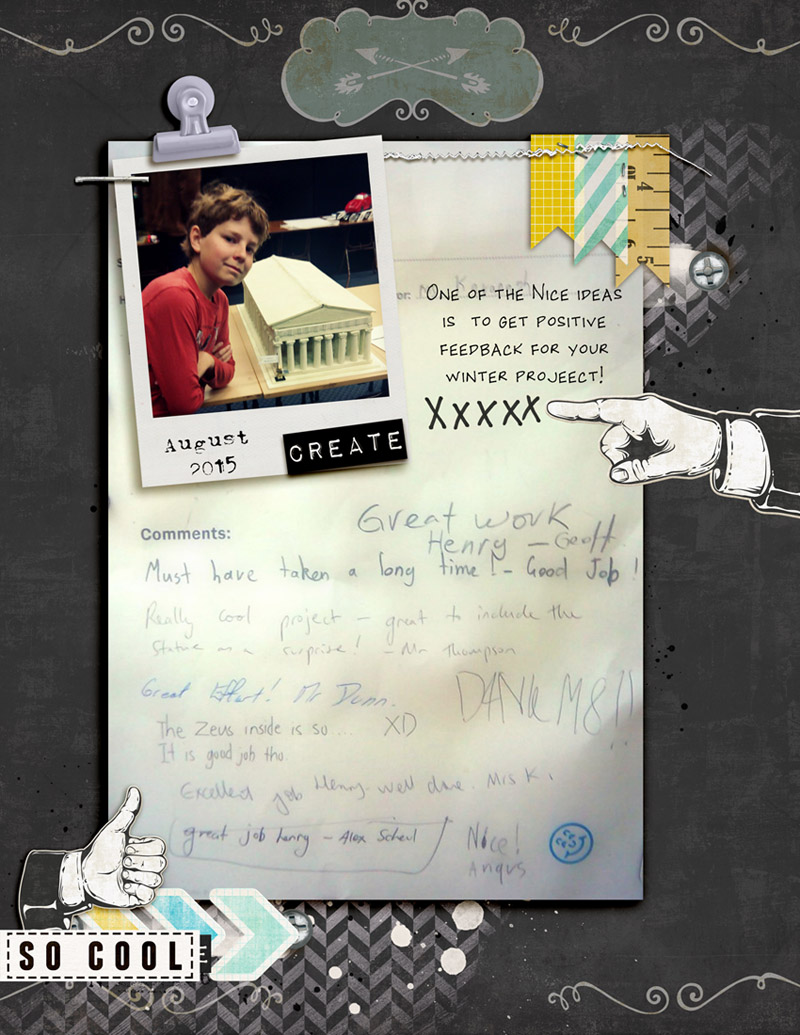 One of the Nice ideas
is to get positive
feedback for your
winter projeect!
Xxxxx
August
2015
CREATE
Comments:
Great work
Henry – Geoff
Must have taken a long time! – Good Job!
Really cool project – great to include the
statue as a surprise! – Mr Thompson
Great Effort! Mr Dunn.
DANK M8!!
The Zeus inside is so... XD
It is good job tho.
Excellent job Henry. well done. Mrs K.
great job henry – Alex
Nice!
Angus
SO COOL
4
5